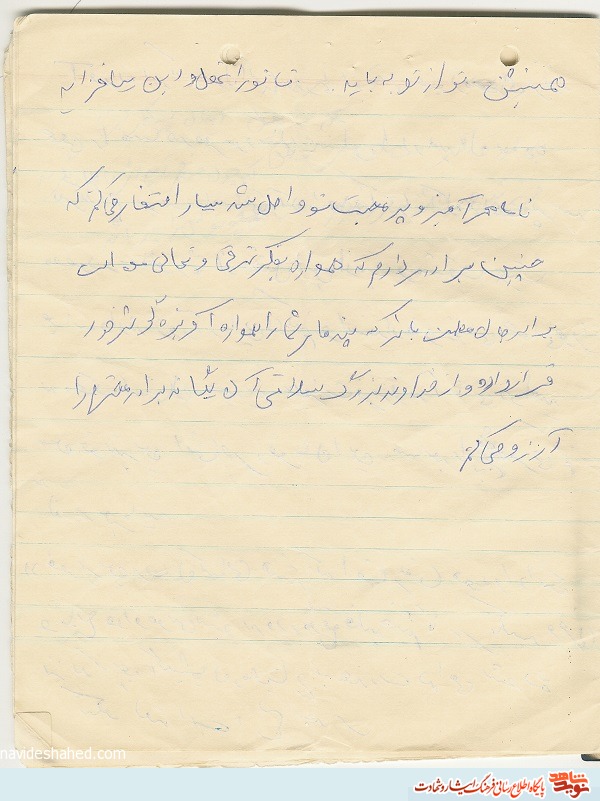 همنشین تو از تو به باید تا تو را عقل و دین بیافزاید
نامه مهرآمیز و پر محبت تو واصل شد بسیار افتخار می‌کنم که
چنین برادری دارم که همواره بفکر ترقی و تعالی من است
برادر جان مطمئن باش که پندهای شما را همواره آویزه گوش خود
قرار داده و از خداوند بزرگ سلامتی آن یگانه برادر مهتر را
آرزو می‌کنم
navideshahed.com
نوید شاهد پایگاه اطلاع رسانی فرهنگ ایثار و شهادت